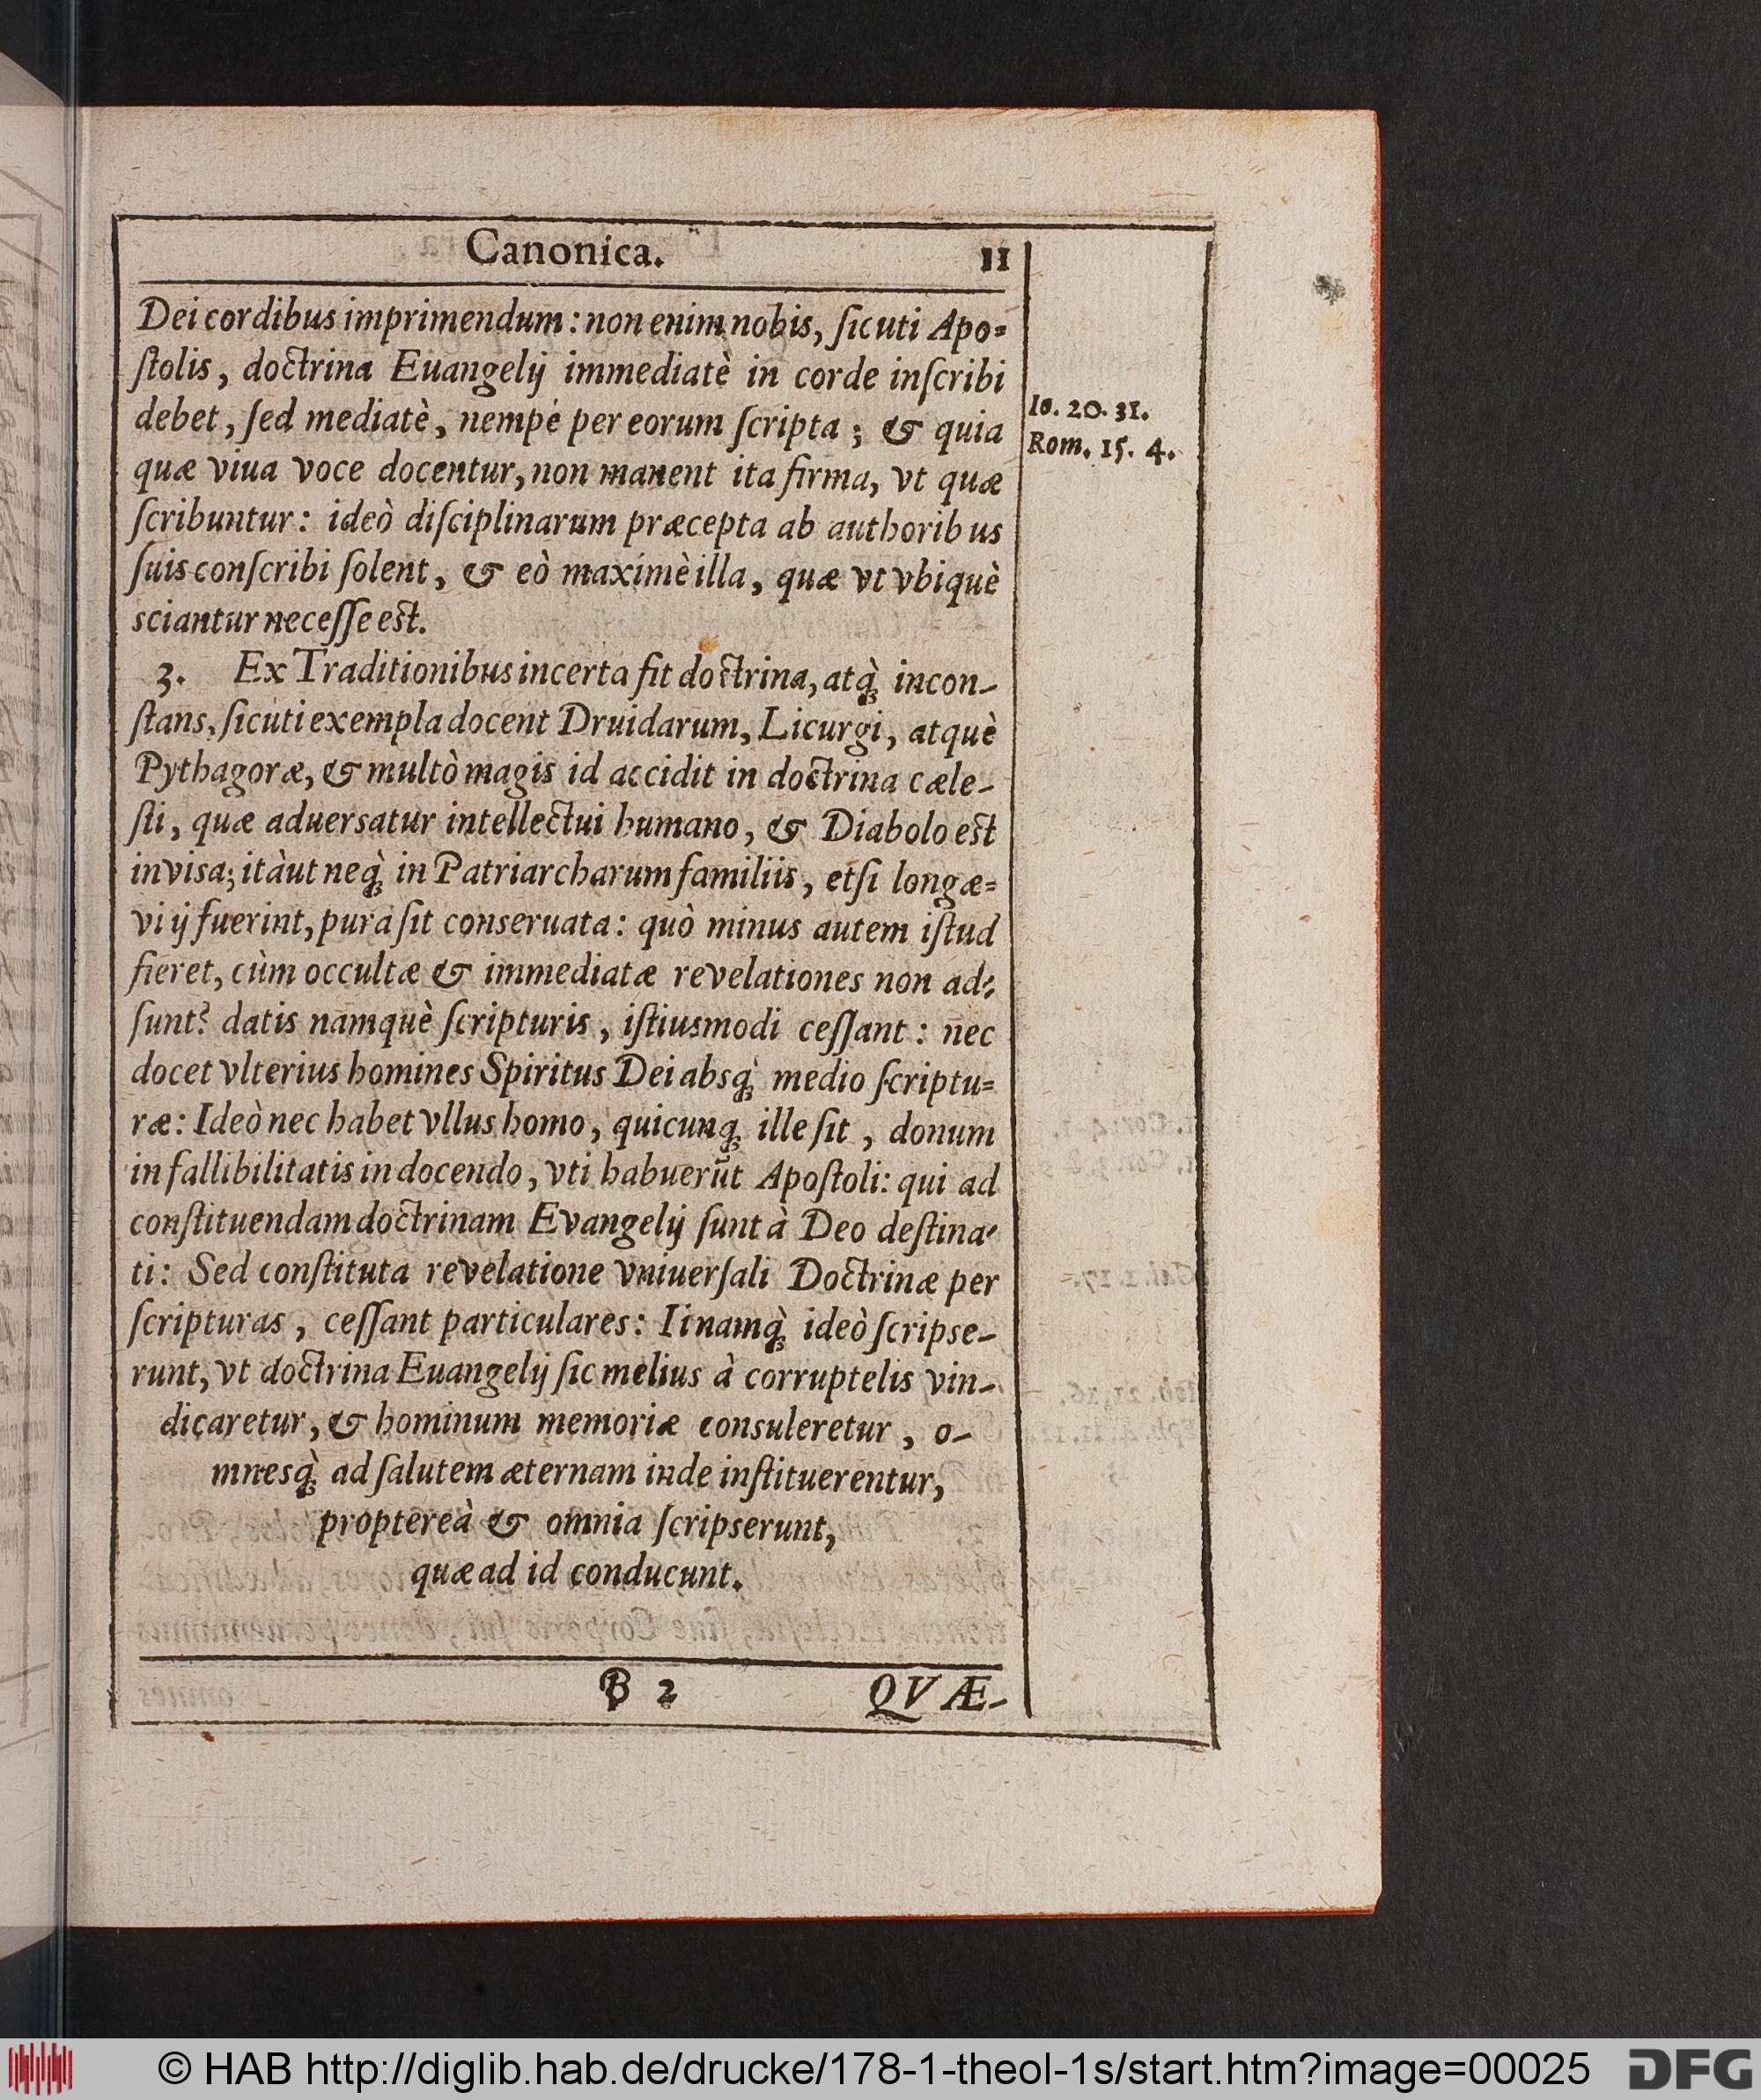 Canonica. 11
Dei cordibus imprimendum: non enim nobis, ſicuti Apo=
ſtolis, doctrina Euangelij immediatè in corde inſcribi
debet, ſed mediatè, nempè per eorum ſcripta; & quia
Io. 20. 31.
Rom. 15. 4.
quæ viua voce docentur, non manent ita firma, vt quæ
ſcribuntur: ideò diſciplinarum præcepta ab authoribus
ſuis conſcribi ſolent, & eò maximè illa, quæ vt vbiquè
sciantur neceſſe est.
3. Ex Traditionibus incerta fit doctrina, atq́; incon-
ſtans, ſicuti exempla docent Druidarum, Licurgi, atquè
Pythagoræ, & multò magis id accidit in doctrina cæle-
ſti, quæ aduersatur intellectui humano, & Diabolo est
invisa; itàut neq́; in Patriarcharum familiis, etſi longæ=
vi ij fuerint, pura ſit conseruata: quò minus autem iſtud
fieret, cùm occultæ & immediatæ revelationes non ad-
ſunt? datis namquè ſcripturis, iſtiusmodi ceſſant: nec
docet vlterius homines Spiritus Dei absq́; medio ſcriptu=
ræ: Ideò nec habet vllus homo, quicunq́; ille ſit, donum
infallibilitatis in docendo, vti habuerũt Apoſtoli: qui ad
conſtituendam doctrinam Evangelij ſunt à Deo deſtina-
ti: Sed conſtituta revelatione vniuerſali Doctrinæ per
ſcripturas, ceſſant particulares: Ii namq́; ideò ſcripse-
runt, vt doctrina Euangelij ſic melius à corruptelis vin-
dicaretur, & hominum memoriæ consuleretur, o-
mnesq́; ad ſalutem æternam inde inſtituerentur,
proptereà & omnia ſcripserunt,
quæ ad id conducunt.
B 2 QVÆ-
© HAB http://diglib.hab.de/drucke/178-1-theol-1s/start.htm?image=00025 DFG